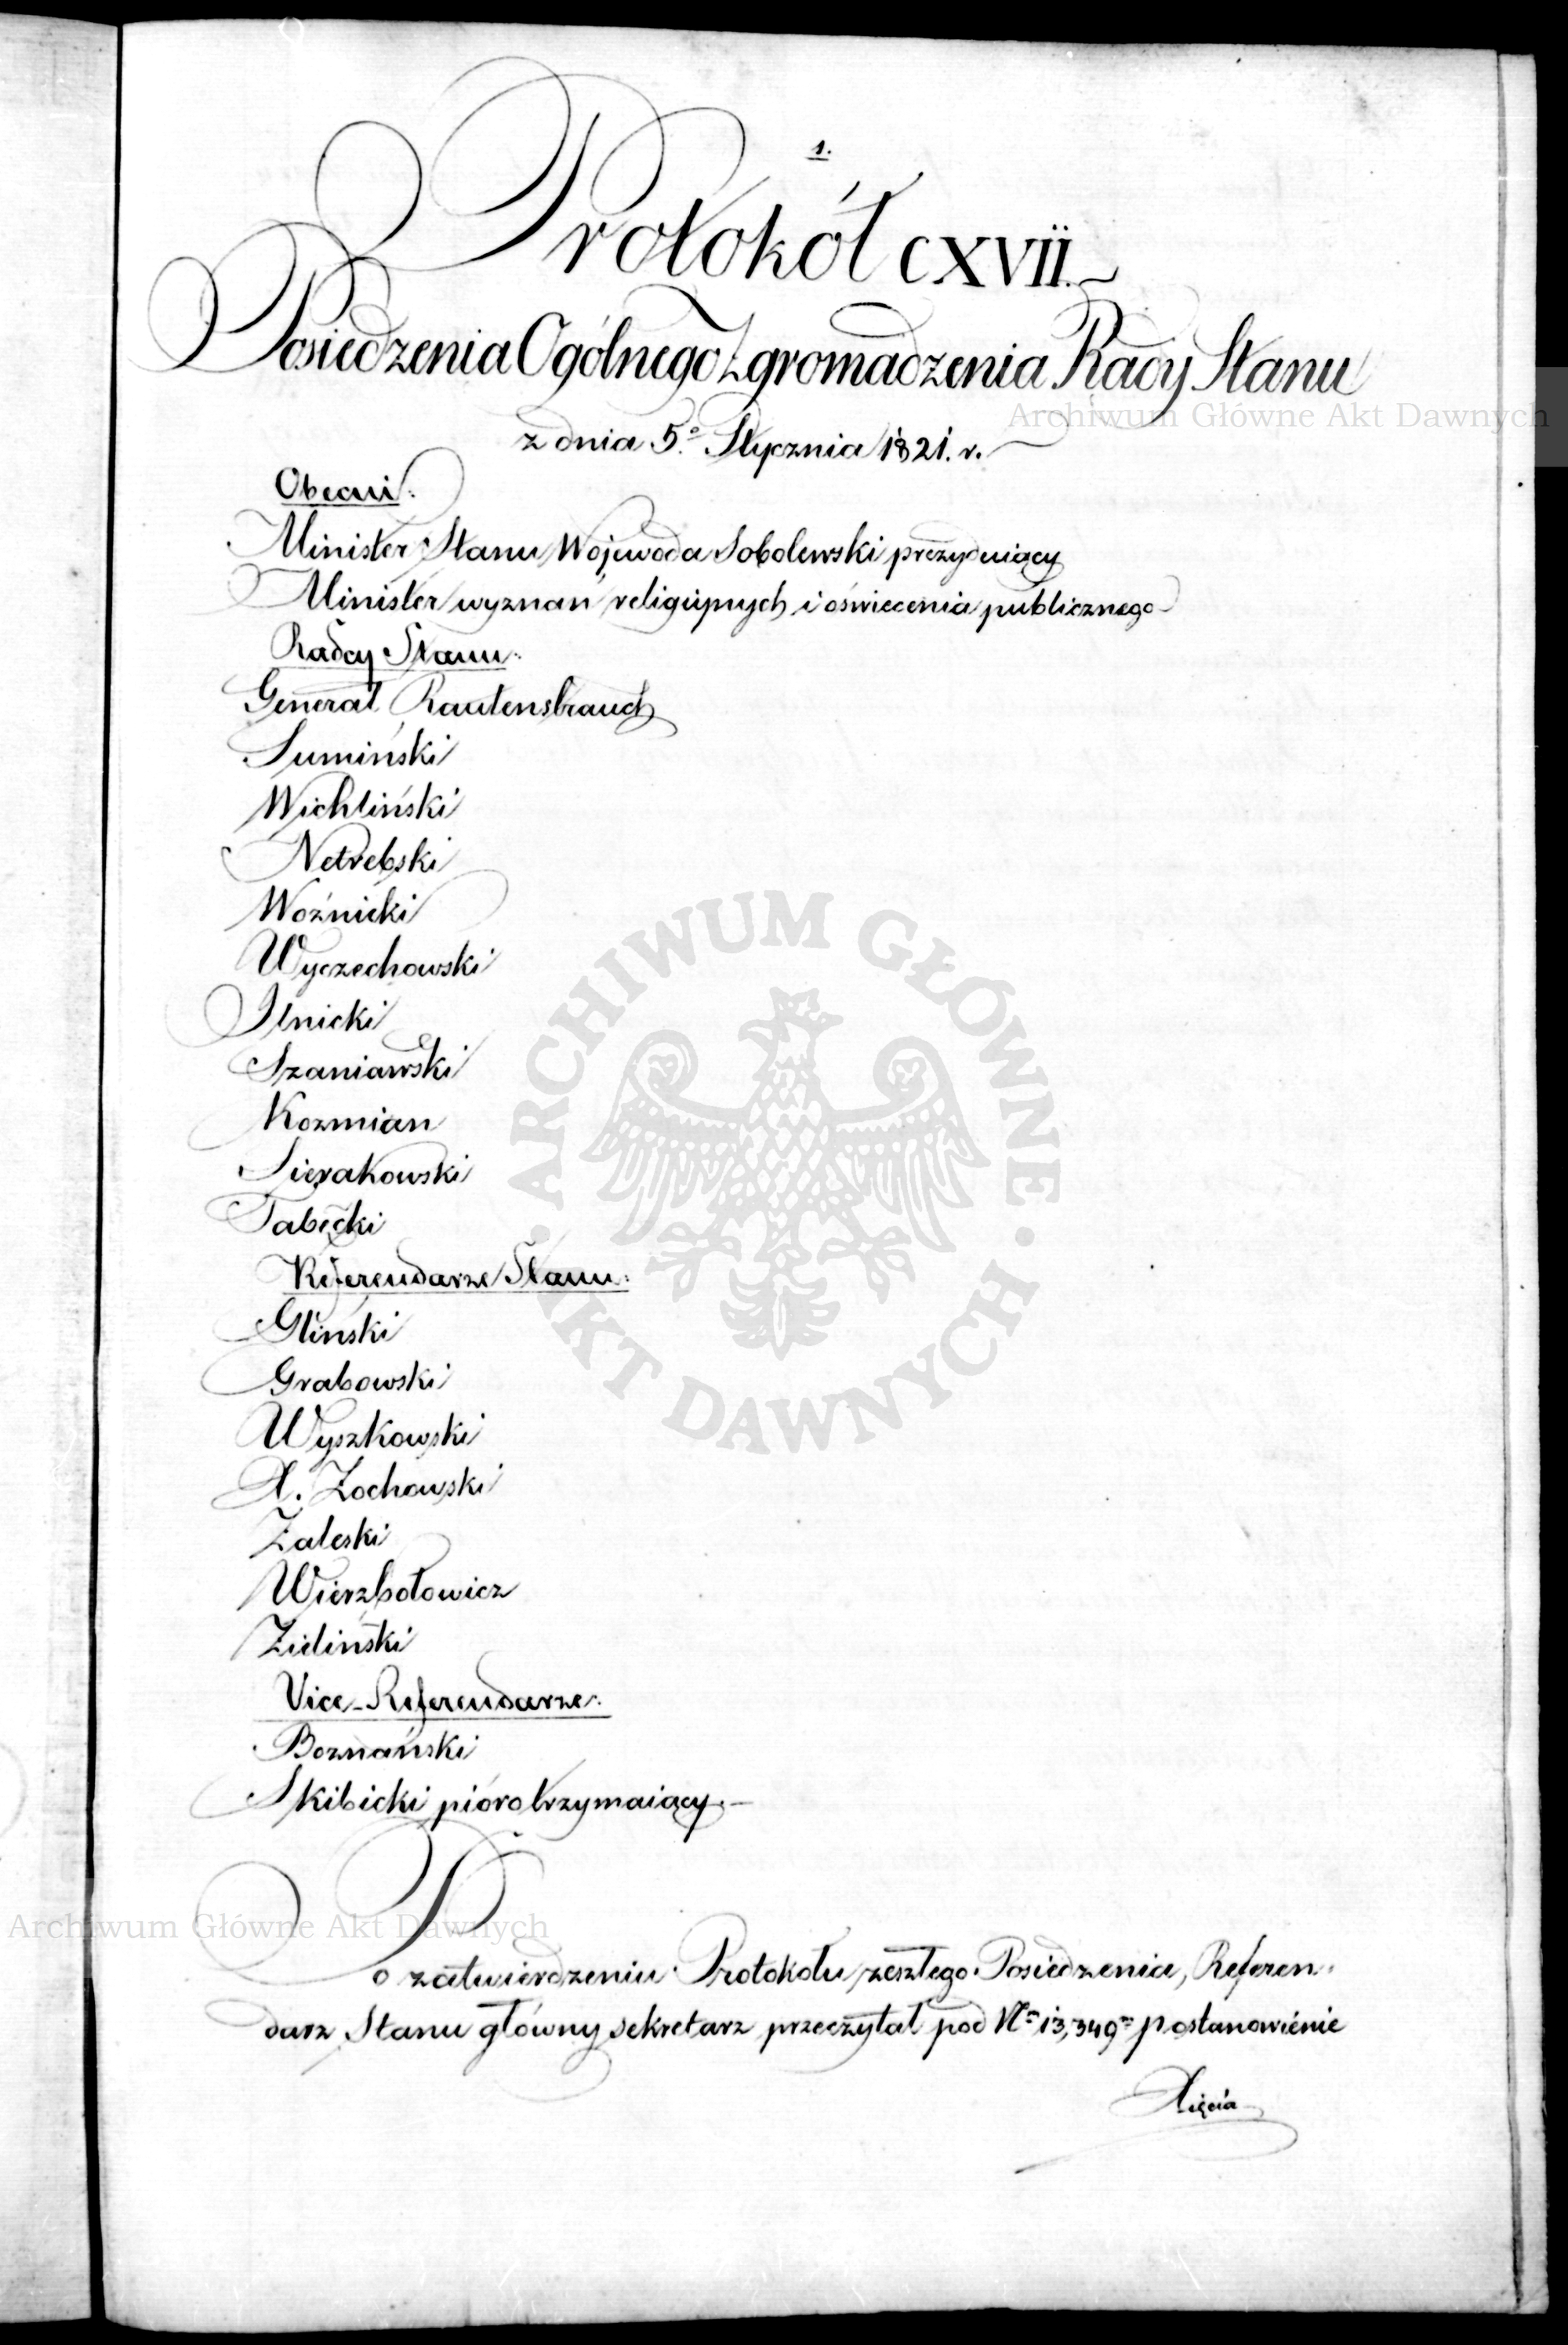 1.
Protokół CXVII.
Posiedzenia Ogólnego Zgromadzenia Rady Stanu
z dnia 5.° Stycznia 1821. r.
Archiwum Główne Akt Dawnych
Obecni:
Minister Stanu Wojewoda Sobolewski prezyduiący
Minister wyznań religiynych i oświecenia publicznego
Radcy Stanu:
Generał Rautenstrauch
Sumiński
Wichliński
Netrebski
Woźnicki
Wyczechowski
Ilnicki
Szaniawski
Kozmian
Sierakowski
Tabęcki
Referendarze Stanu:
Gliński
Grabowski
Wyszkowski
X. Żochowski
Zaleski
Wierzbołowicz
Zieliński
Vice-Referendarze:
Boznański
Skibicki pióro trzymaiący.
ARCHIWUM GŁÓWNE AKT DAWNYCH
Archiwum Główne Akt Dawnych
Po zatwierdzeniu Protokołu zeszłego Posiedzenia, Referen-
darz Stanu główny sekretarz przeczytał pod Nrm 13,349m postanowienie
Xięcia